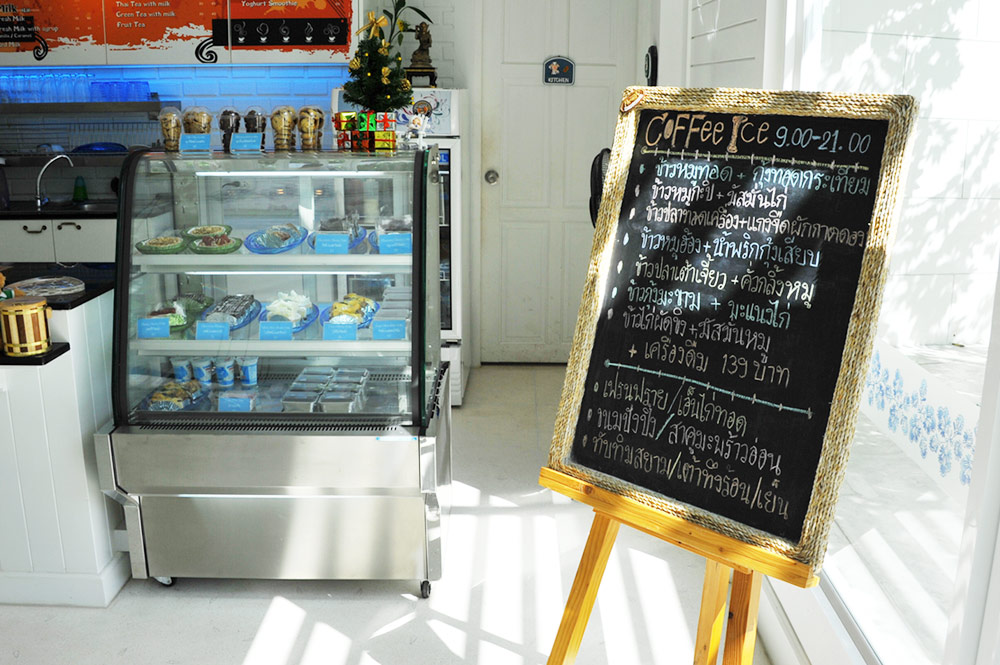 Thai Tea with milk
Green Tea with milk
Fruit Tea
Yoghurt Smoothie
KITCHEN
CoFFee Ice 9.00-21.00
ข้าวหมูทอด + กุ้งทอดกระเทียม
ข้าวหมูกะปิ + มัสมั่นไก่
ข้าวปลาทอดเครื่อง+แกงจืดผักกาดดอง
ข้าวหมูฮ้อง+น้ำพริกกุ้งเสียบ
ข้าวปลาเต้าเจี้ยว + คั่วกลิ้งหมู
ข้าวกุ้งมะขาม + พะแนงไก่
ข้าวไก่ผัดขิง+มัสมั่นหมู
+ เครื่องดื่ม 139 บาท
เฟรนฟราย/เอ็นไก่ทอด
ขนมปังปิ้ง/สาคูมะพร้าวอ่อน
ทับทิมสยาม/เต้าทึงร้อน/เย็น